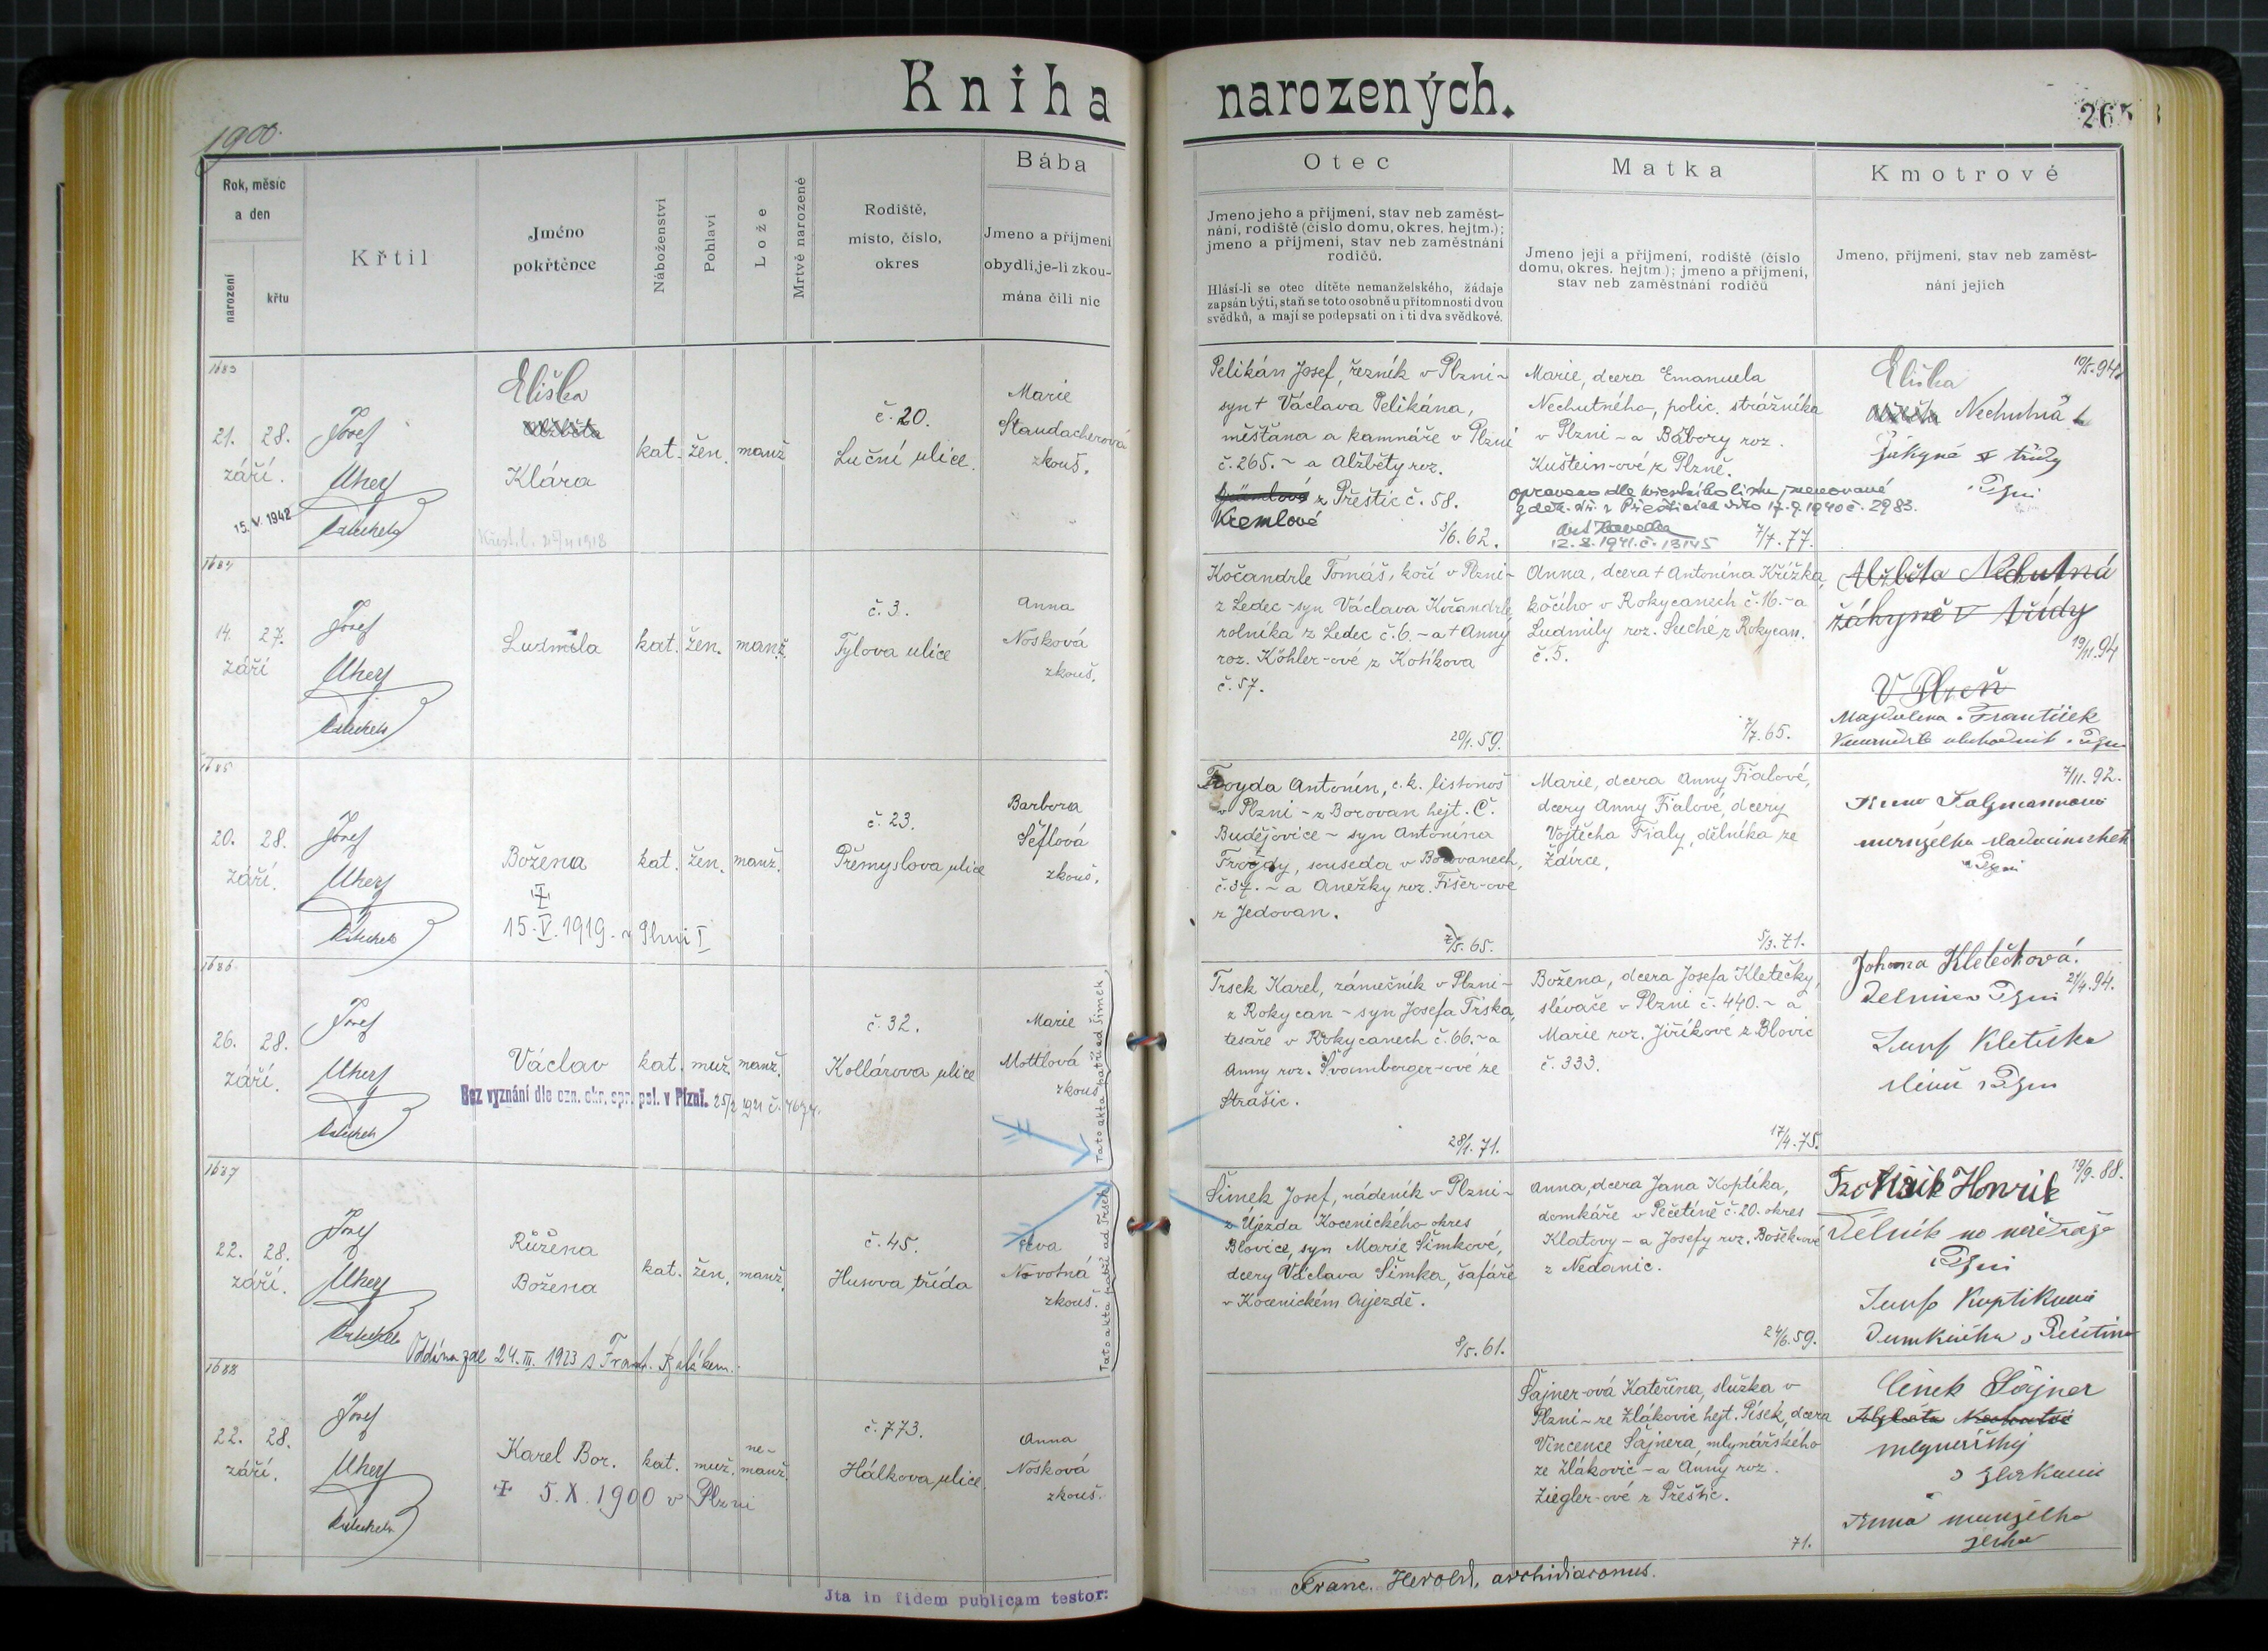 Kniha narozených.
1900.
265
Rok, měsíc
a den
narození
křtu
Křtil
Jméno
pokřtěnce
Náboženství
Pohlaví
Lože
Mrtvě narozené
Rodiště,
místo, číslo,
okres
Bába
Jmeno a příjmení
obydlí, je-li zkou-
mána čili nic
Otec
Jmeno jeho a příjmení, stav neb zaměst-
nání, rodiště (číslo domu, okres, hejtm.);
jmeno a příjmení, stav neb zaměstnání
rodičů.
Hlásí-li se otec dítěte nemanželského, žádaje
zapsán býti, staň se toto osobně u přítomnosti dvou
svědků, a mají se podepsati on i ti dva svědkové.
Matka
Jmeno její a příjmení, rodiště (číslo
domu, okres, hejtm.); jmeno a příjmení,
stav neb zaměstnání rodičů
Kmotrové
Jmeno, příjmení, stav neb zaměst-
nání jejich
1683
21. 28.
září.
15. V. 1942
Josef
Uhery
Eliška
Alžběta
Klára
kat. žen. manž
č. 20.
Luční ulice.
Marie
Staudacherová
zkouš.
Pelikán Josef, řezník v Plzni -
syn † Václava Pelikána,
měšťana a kamnáře v Plzni
č. 265. - a Alžběty roz.
z Přeštic č. 58.
Kremlové
3/6. 62.
Marie, dcera Emanuela
Nechutného, polic. strážníka
v Plzni - a Bábory roz.
Kuštein-ové z Plzně.
opraveno dle křestního listu jmenované
12. 8. 1941. č. 13145
7/7. 77.
10/5. 94.
Eliška
Nechutná
žákyně V třídy
1684
14. 27.
září
Josef
Uhery
Ludmila
kat. žen. manž.
č. 3.
Tylova ulice
Anna
Nosková
zkouš.
Kočandrle Tomáš, kočí v Plzni -
z Ledec - syn Václava Kočandrle
rolníka z Ledec č. 6. - a † Anny
roz. Köhler-ové z Kotíkova
č. 57.
20/1. 59.
Anna, dcera † Antonína Křížka,
kočího v Rokycanech č. 16. - a
Ludmily roz. Suché z Rokycan.
č. 5.
7/7. 65.
Alžběta Nechutná
žákyně V třídy
19/11. 94
V Plzeň
Magdalena František
1685
20. 28.
září.
Josef
Uhery
Božena
†
15. V. 1919. v Plzni I
kat. žen. manž.
č. 23.
Přemyslova ulice
Barbora
Šéflová
zkouš.
Tvoyda Antonín, c. k. listonoš
v Plzni - z Borovan hejt. Č.
Budějovice - syn Antonína
souseda v Borovanech,
č. 37. - a Anežky roz. Fišer-ové
z Jedovan.
7/5. 65.
Marie, dcera Anny Fialové,
dcery Anny Fialové, dcery
Vojtěcha Fialy, dělníka ze
Ždírce.
5/3. 71.
7/11. 92.
1686
26. 28.
září.
Josef
Uhery
Václav
Bez vyznání dle ozn. okr. spr. pol. v Plzni. 25/2 1921 č.
kat. muž. manž.
č. 32.
Kollárova ulice
Marie
Mottlová
zkouš
Tato akta patří ad Šimek
Trsek Karel, zámečník v Plzni -
z Rokycan - syn Josefa Trska,
tesaře v Rokycanech č. 66. - a
Anny roz. Švamberger-ové ze
Strašic.
28/1. 71.
Božena, dcera Josefa Kletečky,
slévače v Plzni č. 440. - a
Marie roz. Jiříkové z Blovic
č. 333.
17/4. 75.
Johana Kletečková.
21/4. 94.
Josef Kletečka
1687
22. 28.
září.
Josef
Uhery
Růžena
Božena
Oddána zde 24. III. 1923 s Frant.
kat. žen. manž.
č. 45.
Husova třída
Eva
Novotná
zkouš.
Tato akta patří ad Trsek
Šimek Josef, nádeník v Plzni -
z Újezda Kocenického okres
Blovice, syn Marie Šimkové,
dcery Václava Šimka, šafáře
v Kocenickém Oujezdě.
8/5. 61.
Anna, dcera Jana Koptíka,
domkáře v Pečetíně č. 20. okres
Klatovy - a Josefy roz. Bošek-ové
z Nedanic.
24/6. 59.
19/9. 88.
1688
22. 28.
září.
Josef
Uhery
Karel Bor.
† 5. X. 1900 v Plzni
kat. muž. ne-
manž.
č. 773.
Hálkova ulice.
Anna
Nosková
zkouš.
Šajner-ová Kateřina, služka v
Plzni - ze Zlákovic hejt. Písek, dcera
Vincence Šajnera, mlynářského
ze Zlákovic - a Anny roz.
Ziegler-ové z Přeštic.
71.
Čeněk Šajner
Jta in fidem publicam testor:
Franc. Herold, archidiaconus.